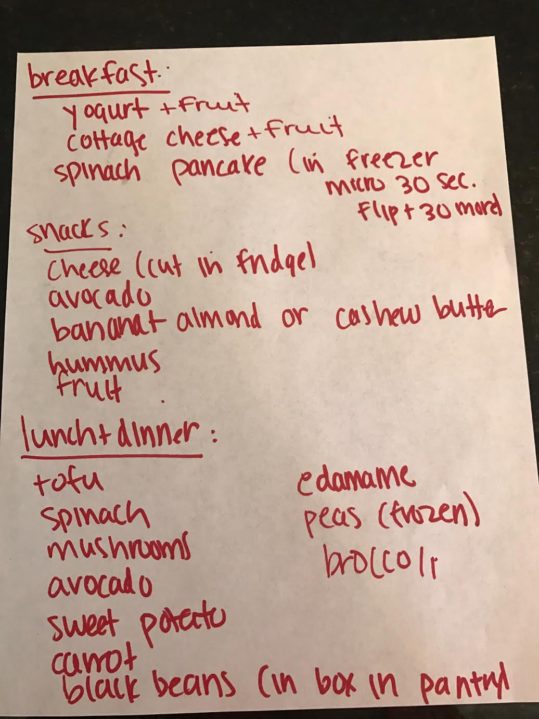 breakfast:
yogurt + fruit
cottage cheese + fruit
spinach pancake (in freezer
micro 30 sec.
flip + 30 more)
snacks:
cheese (cut in fridge)
avocado
banana + almond or cashew butter
hummus
fruit
lunch + dinner:
tofu
spinach
mushrooms
avocado
sweet potato
carrot
black beans (in box in pantry)
edamame
peas (frozen)
broccoli